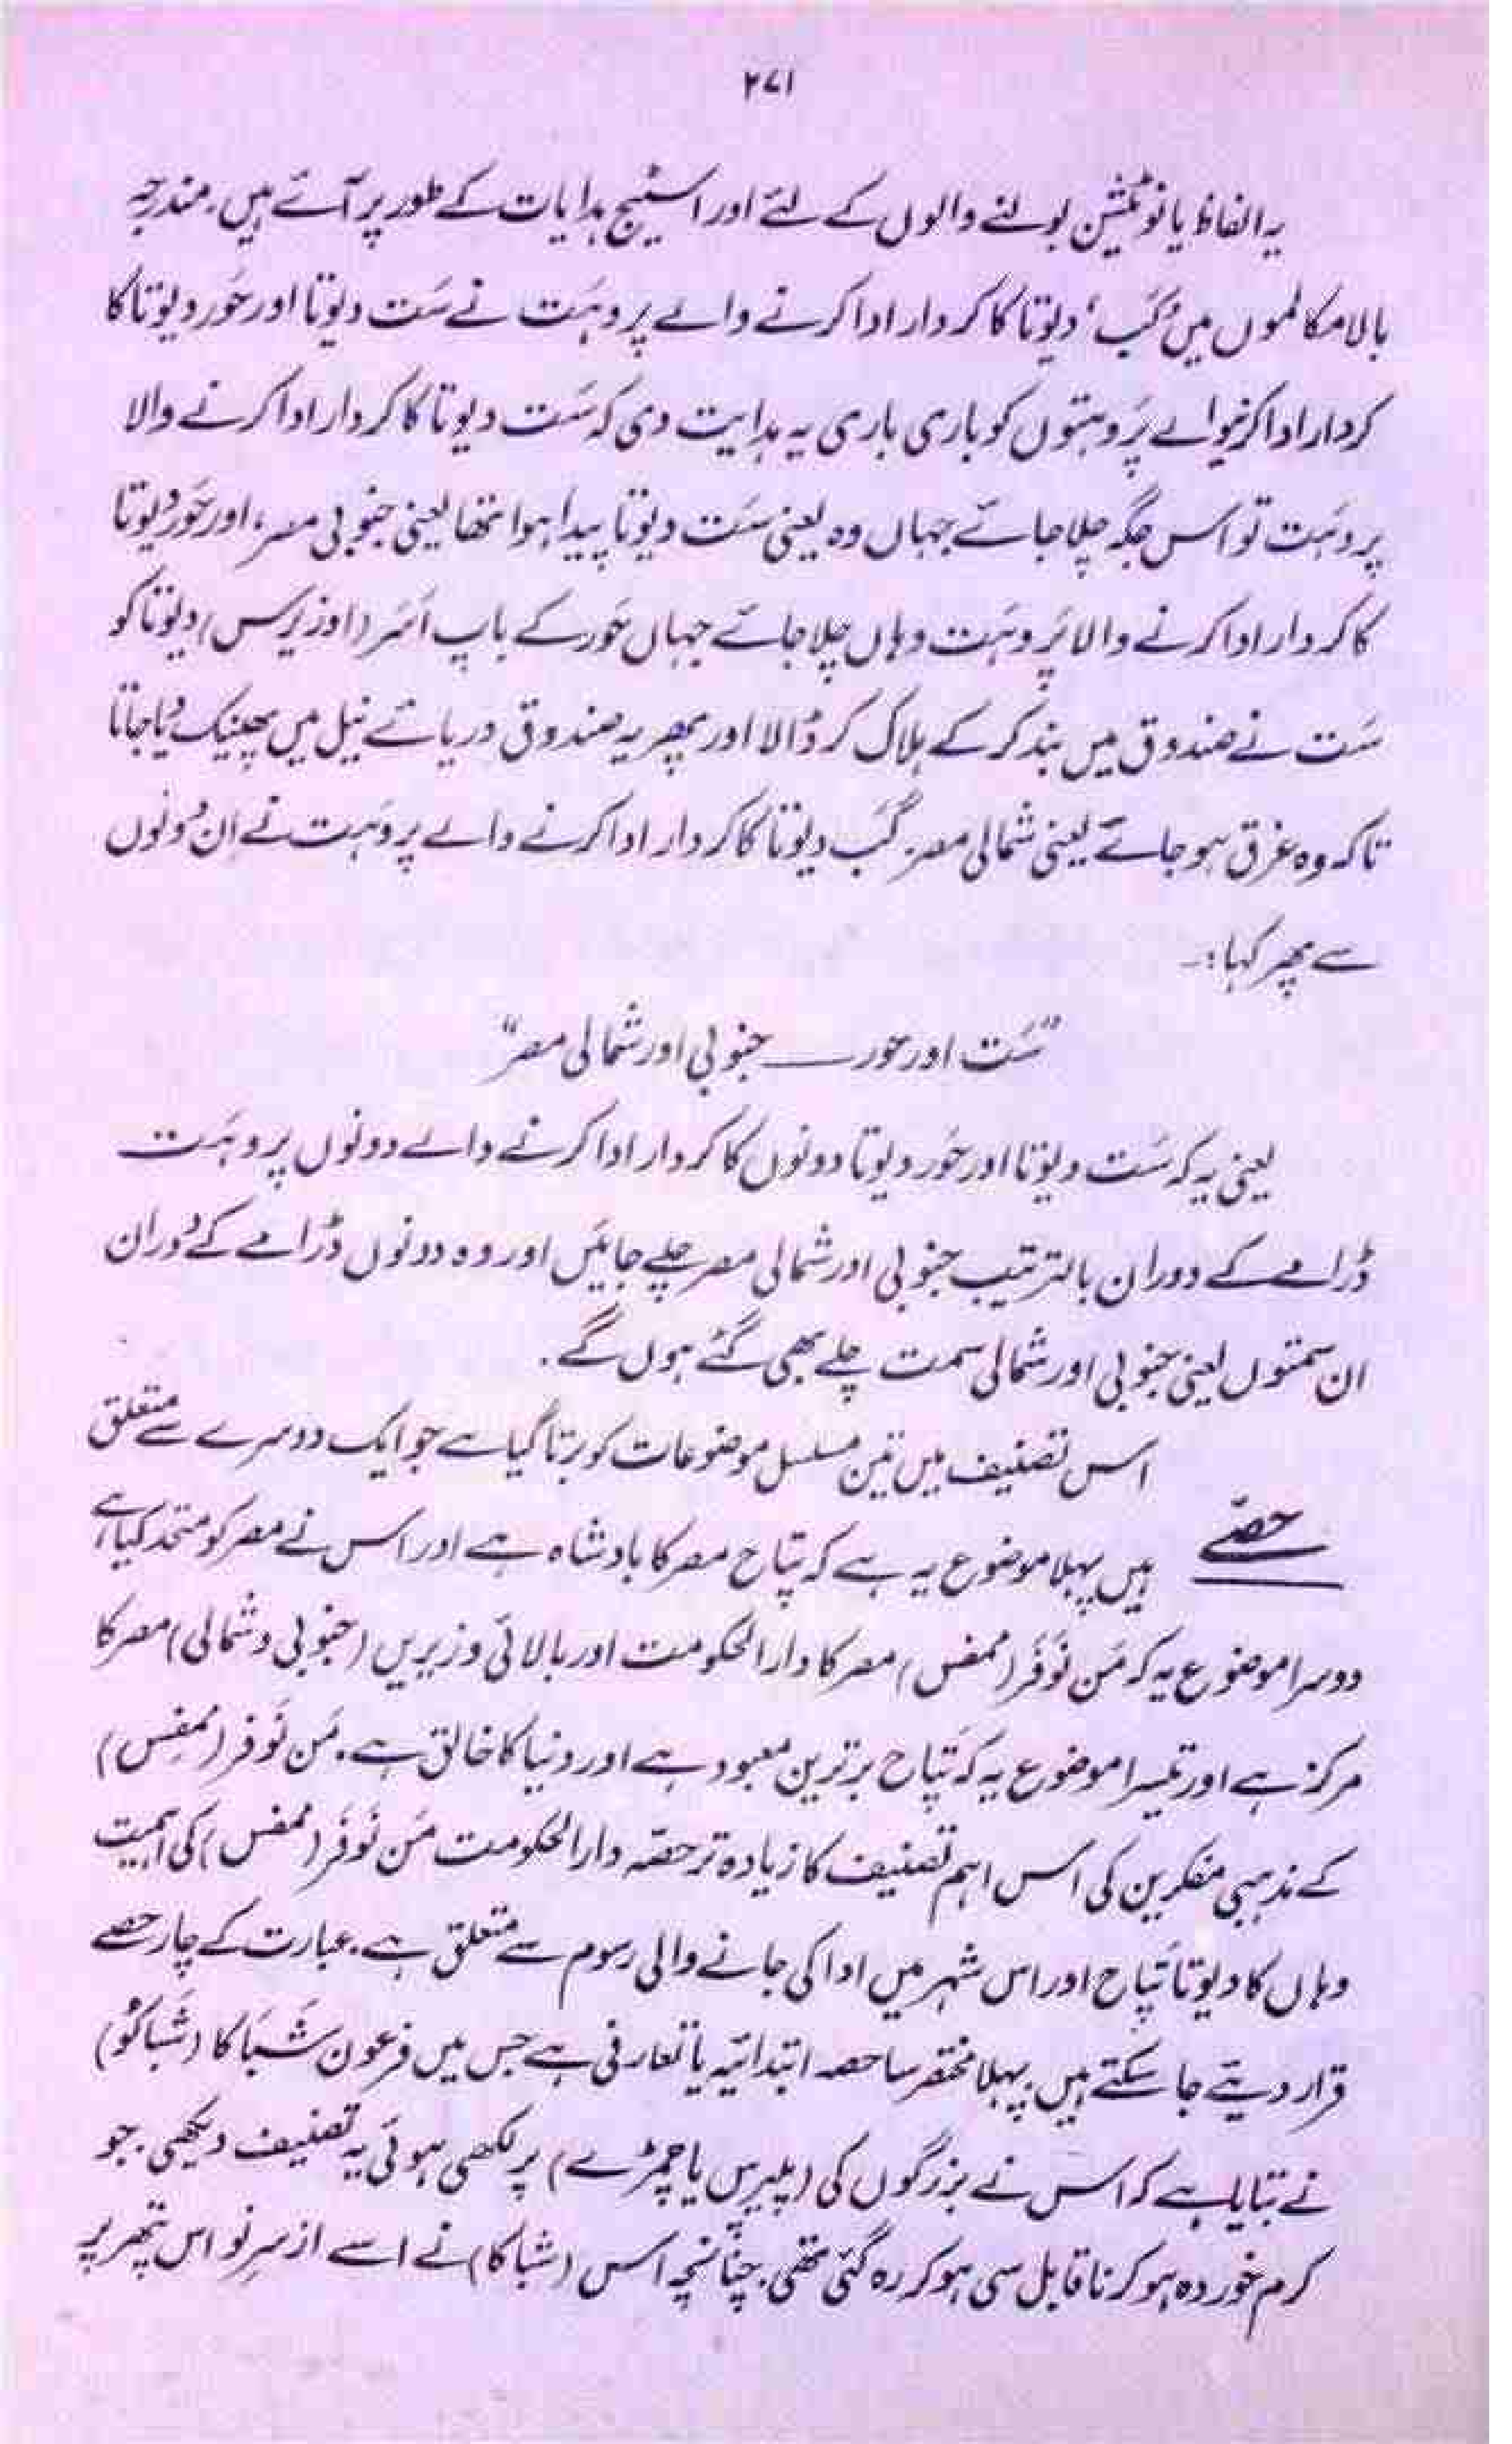 ۲۷۱
یہ الفاظ یا نوٹیشن بولنے والوں کے لئے اور اسٹیج ہدایات کے طور پر آئے ہیں۔ مندرجہ
بالا مکالموں میں گَب، دیوتا کا کردار ادا کرنے والے پروہَت نے سَت دیوتا اور حَور دیوتا کا
کردار ادا کرنیوالے پَروہتوں کو باری باری یہ ہدایت دی کہ سَت دیوتا کا کردار ادا کرنے والا
پروہَت تو اس جگہ چلا جائے جہاں وہ یعنی سَت دیوتا پیدا ہوا تھا یعنی جنوبی مصر، اور حَور دیوتا
کا کردار ادا کرنے والا پَروہَت وہاں چلا جائے جہاں حَور کے باپ اَسَر (اوزیرس) دیوتا کو
سَت نے صندوق میں بند کر کے ہلاک کر ڈالا اور پھر یہ صندوق دریائے نیل میں پھینک دیا جاتا
تاکہ وہ غرق ہو جائے یعنی شمالی مصر۔ گَب دیوتا کا کردار ادا کرنے والے پروہَت نے اِن دونوں
سے پھر کہا:۔
"سَت اور حور ــــ جنوبی اور شمالی مصر"
یعنی یہ کہ سَت دیوتا اور حَور دیوتا دونوں کا کردار ادا کرنے والے دونوں پروہَت
ڈرامے کے دوران بالترتیب جنوبی اور شمالی مصر چلے جائیں اور وہ دونوں ڈرامے کے دَوران
ان سمتوں یعنی جنوبی اور شمالی سمت چلے بھی گئے ہوں گے۔
اس تصنیف میں تین مسلسل موضوعات کو برتا گیا ہے جو ایک دوسرے سے متعلق
حصّے
ہیں پہلا موضوع یہ ہے کہ پتاح مصر کا بادشاہ ہے اور اس نے مصر کو متحد کیا ہے،
دوسرا موضوع یہ کہ مَن نَوفَر (ممفس) مصر کا دارالحکومت اور بالائی وزیریں (جنوبی و شمالی) مصر کا
مرکز ہے اور تیسرا موضوع یہ کہ پَتاح برترین معبود ہے اور دنیا کا خالق ہے۔ مَن نَوفر (ممفِس)
کے مذہبی مفکرین کی اس اہم تصنیف کا زیادہ تر حصّہ دارالحکومت مَن نَوفَر (ممفس) کی اہمیت
وہاں کا دیوتا پَتاح اور اس شہر میں ادا کی جانے والی رسوم سے متعلق ہے۔ عبارت کے چار حصے
قرار دیئے جا سکتے ہیں۔ پہلا مختصر سا حصہ ابتدائیہ یا تعارفی ہے جس میں فرعون شَبَاکا (شَباکُو)
نے بتایا ہے کہ اس نے بزرگوں کی (پیپرس یا چمڑے) پر لکھی ہوئی یہ تصنیف دیکھی۔ جو
کرم خوردہ ہو کر ناقابل سی ہو کر رہ گئی تھی۔ چنانچہ اس (شباکا) نے اسے از سرِ نو اس پتھر پر